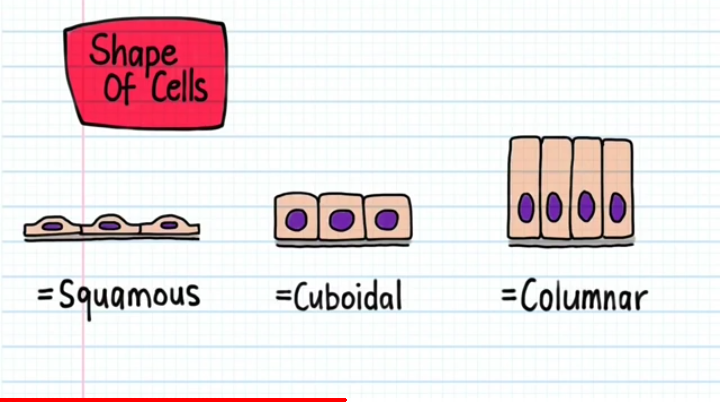 Shape
Of Cells
=Squamous
=Cuboidal
=Columnar